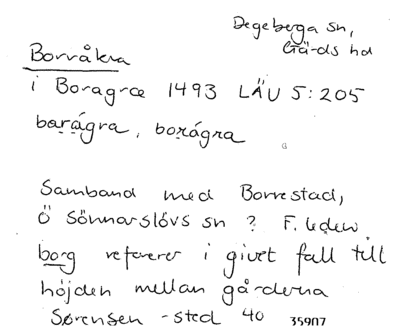 Degeberga sn,
Gärds hd
Borråkra
i Boragræ 1493 LÄU 5:205
barágra, borágra
Samband med Borrestad,
Ö Sönnarslövs sn ? F. leden
borg refererer i givet fall till
höjden mellan gårderna
Sørensen -sted 40
35907